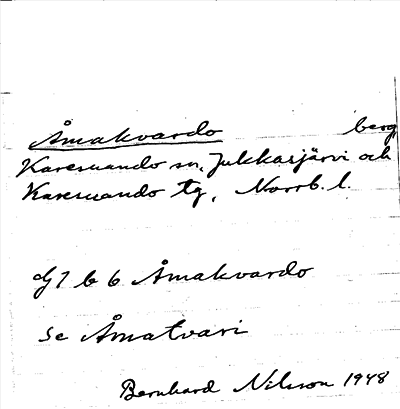 Åmakvardo berg
Karesuando sn, Jukkasjärvi och
Karesuando tg, Norrb. l.
dJ 7 b 6 Åmakvardo
se Åmatvari
Bernhard Nilsson 1948